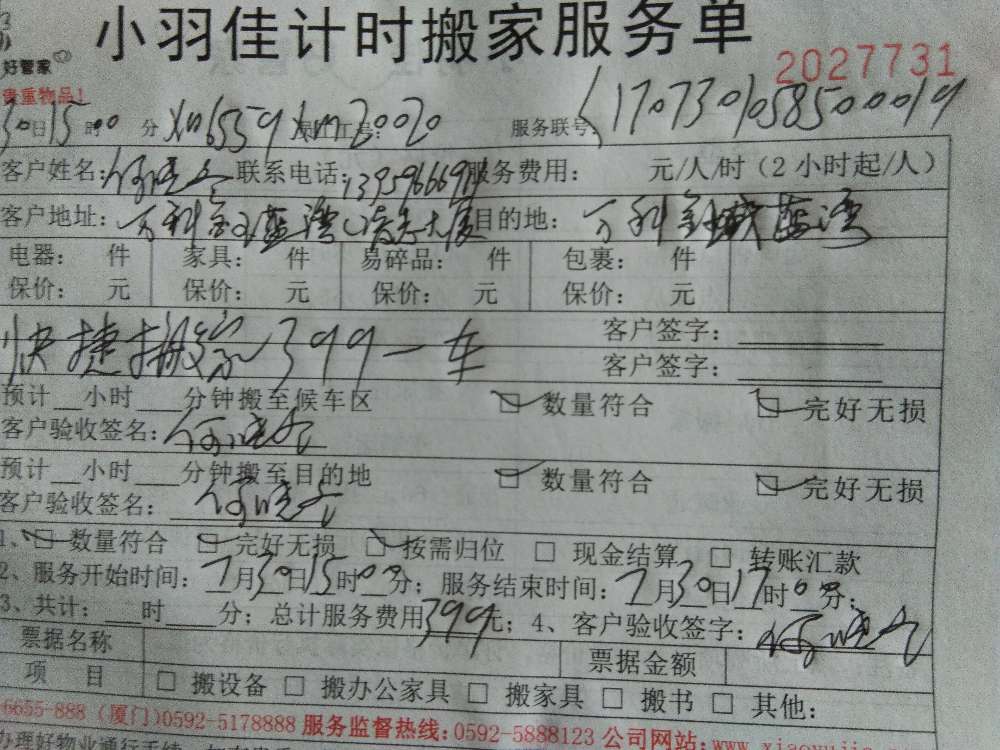 小羽佳计时搬家服务单
好管家
2027731
贵重物品!
30日15时00分 服务联号: 17073010585000019
客户姓名: 联系电话: 服务费用: 元/人/时(2小时起/人)
客户地址: 万科金域蓝湾 目的地: 万科金域蓝湾
电器: 件 家具: 件 易碎品: 件 包裹: 件
保价: 元 保价: 元 保价: 元 保价: 元
快捷搬家399一车 客户签字:
客户签字:
预计__小时___分钟搬至候车区 ☑数量符合 ☑完好无损
客户验收签名:
预计__小时___分钟搬至目的地 ☑数量符合 ☑完好无损
客户验收签名:
1、☑数量符合 ☑完好无损 ☑按需归位 □现金结算 □转账汇款
2、服务开始时间: 7月30日15时00分; 服务结束时间: 7月30日17时00分;
3、共计: ___时___分; 总计服务费用399元; 4、客户验收签字:
票据名称 票据金额
项 目 □搬设备 □搬办公家具 □搬家具 □搬书 □其他:
6655-888 (厦门)0592-5178888 服务监督热线:0592-5888123 公司网站:www.xiaoyujia
办理好物业通行手续